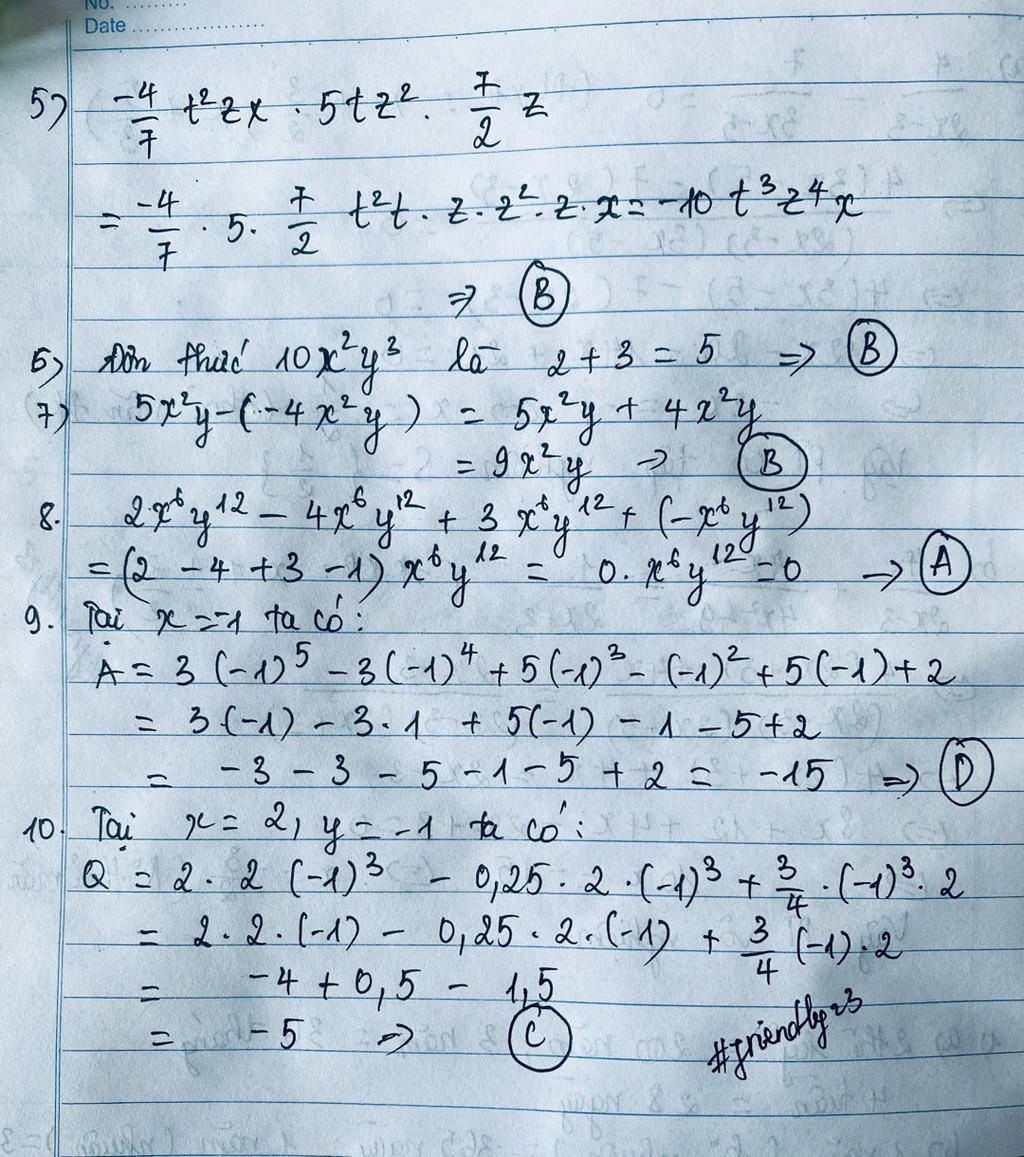 No. ..........
Date ....................
5) -4/7 t²zx . 5tz² . 7/2 z
= -4/7 . 5 . 7/2 t²t . z . z² . z . x = -10 t³z⁴x
=> B
6) Đơn thức 10x²y³ là 2 + 3 = 5 => B
7) 5x²y - (-4x²y) = 5x²y + 4x²y
= 9x²y -> B
8. 2x⁶y¹² - 4x⁶y¹² + 3x⁶y¹² + (-x⁶y¹²)
= (2 - 4 + 3 - 1) x⁶y¹² = 0. x⁶y¹² = 0 -> A
9. Tại x = -1 ta có:
A = 3 (-1)⁵ - 3 (-1)⁴ + 5 (-1)³ - (-1)² + 5 (-1) + 2
= 3 (-1) - 3 . 1 + 5(-1) - 1 - 5 + 2
= -3 - 3 - 5 - 1 - 5 + 2 = -15 => D
10. Tại x = 2, y = -1 ta có:
Q = 2 . 2 (-1)³ - 0,25 . 2 . (-1)³ + 3/4 . (-1)³ . 2
= 2 . 2 . (-1) - 0,25 . 2 . (-1) + 3/4 (-1) . 2
= -4 + 0,5 - 1,5
= -5 => C